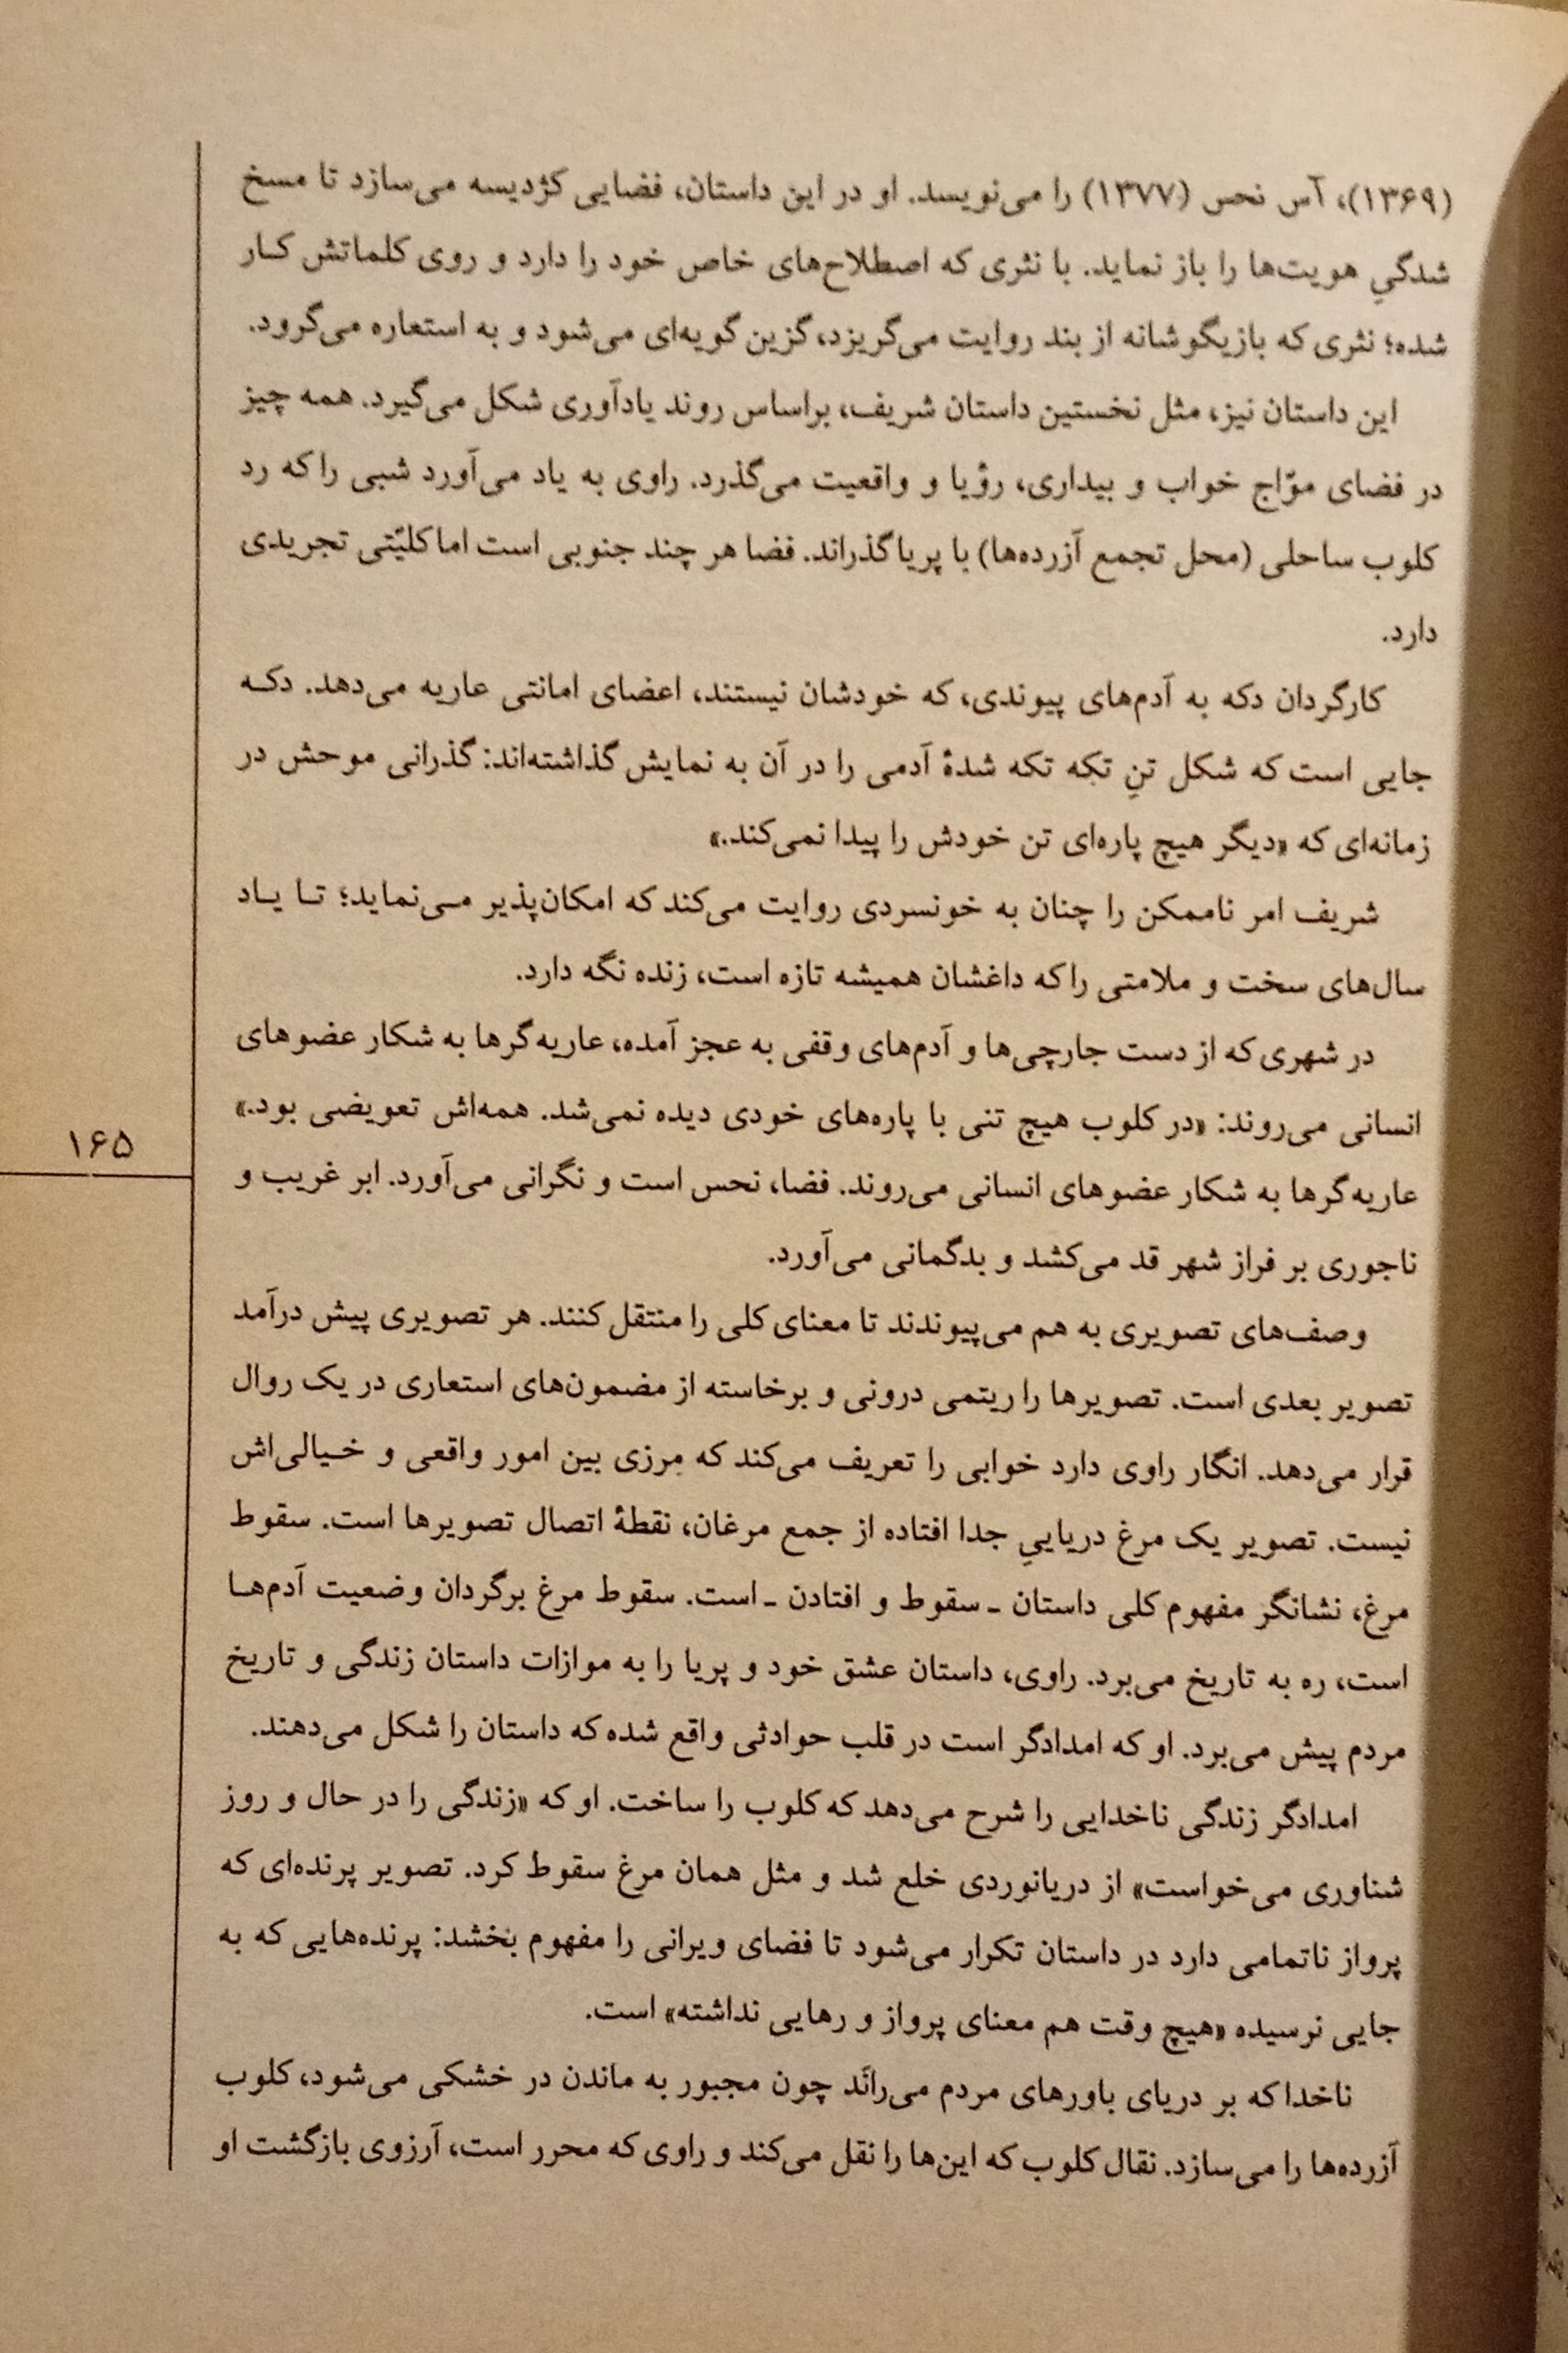 (۱۳۶۹)، آس نحس (۱۳۷۷) را می‌نویسد. او در این داستان، فضایی کژدیسه می‌سازد تا مسخ
شدگیِ هویت‌ها را باز نماید. با نثری که اصطلاح‌های خاص خود را دارد و روی کلماتش کار
شده؛ نثری که بازیگوشانه از بند روایت می‌گریزد، گزین گویه‌ای می‌شود و به استعاره می‌گرود.
این داستان نیز، مثل نخستین داستان شریف، براساس روند یادآوری شکل می‌گیرد. همه چیز
در فضای موّاج خواب و بیداری، رؤیا و واقعیت می‌گذرد. راوی به یاد می‌آورد شبی را که رد
کلوب ساحلی (محل تجمع آزرده‌ها) با پریا گذراند. فضا هر چند جنوبی است اما کلیّتی تجریدی
دارد.
کارگردان دکه به آدم‌های پیوندی، که خودشان نیستند، اعضای امانتی عاریه می‌دهد. دکه
جایی است که شکل تنِ تکه تکه شدهٔ آدمی را در آن به نمایش گذاشته‌اند: گذرانی موحش در
زمانه‌ای که «دیگر هیچ پاره‌ای تن خودش را پیدا نمی‌کند.»
شریف امر ناممکن را چنان به خونسردی روایت می‌کند که امکان‌پذیر می‌نماید؛ تا یاد
سال‌های سخت و ملامتی را که داغشان همیشه تازه است، زنده نگه دارد.
در شهری که از دست جارچی‌ها و آدم‌های وقفی به عجز آمده، عاریه‌گرها به شکار عضوهای
انسانی می‌روند: «در کلوب هیچ تنی با پاره‌های خودی دیده نمی‌شد. همه‌اش تعویضی بود.»
عاریه‌گرها به شکار عضوهای انسانی می‌روند. فضا، نحس است و نگرانی می‌آورد. ابر غریب و
ناجوری بر فراز شهر قد می‌کشد و بدگمانی می‌آورد.
وصف‌های تصویری به هم می‌پیوندند تا معنای کلی را منتقل کنند. هر تصویری پیش درآمد
تصویر بعدی است. تصویرها را ریتمی درونی و برخاسته از مضمون‌های استعاری در یک روال
قرار می‌دهد. انگار راوی دارد خوابی را تعریف می‌کند که مرزی بین امور واقعی و خیالی‌اش
نیست. تصویر یک مرغ دریاییِ جدا افتاده از جمع مرغان، نقطهٔ اتصال تصویرها است. سقوط
مرغ، نشانگر مفهوم کلی داستان ـ سقوط و افتادن ـ است. سقوط مرغ برگردان وضعیت آدم‌ها
است، ره به تاریخ می‌برد. راوی، داستان عشق خود و پریا را به موازات داستان زندگی و تاریخ
مردم پیش می‌برد. او که امدادگر است در قلب حوادثی واقع شده که داستان را شکل می‌دهند.
امدادگر زندگی ناخدایی را شرح می‌دهد که کلوب را ساخت. او که «زندگی را در حال و روز
شناوری می‌خواست» از دریانوردی خلع شد و مثل همان مرغ سقوط کرد. تصویر پرنده‌ای که
پرواز ناتمامی دارد در داستان تکرار می‌شود تا فضای ویرانی را مفهوم بخشد: پرنده‌هایی که به
جایی نرسیده «هیچ وقت هم معنای پرواز و رهایی نداشته» است.
ناخدا که بر دریای باورهای مردم می‌رانَد چون مجبور به ماندن در خشکی می‌شود، کلوب
آزرده‌ها را می‌سازد. نقال کلوب که این‌ها را نقل می‌کند و راوی که محرر است، آرزوی بازگشت او
۱۶۵